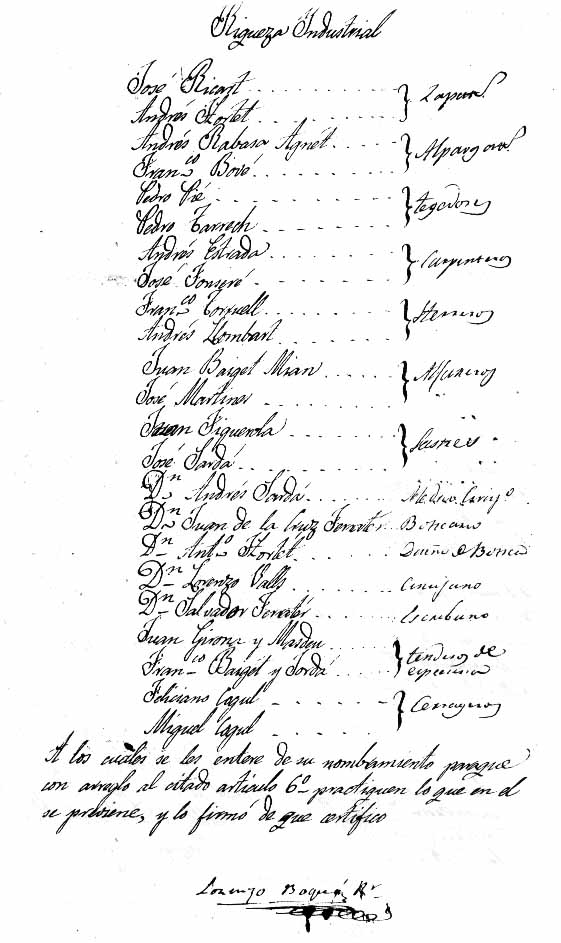 Riqueza Industrial
José Ricart
Andrés Flortet
Zapats.
Andrés Rabasa Agnét
Franco. Bové
Alpargats.
Pedro Pié
Pedro Tarrech
tegedores
Andrés Estrada
José Fonseré
Carpinteros
Franco. Torrell
Andrés Llombart
Herreros
Juan Barget Mian
José Martines
Alfareros
Juan Figuerola
José Sardá
Sastres
Dn. Andrés Sardá Medico Ciruj.o
Dn. Juan de la Cruz Ferratér Boticario
Dn. Anto. Flortét Dueño de Botica
Dn. Lorenzo Valls Cirujano
Dn. Salvador Ferratér Escribano
Juan Girona y Masdeu
Franco. Bargét y Jordá
tenderos de
especieria
Feliciano Cagul
Miguel Cagul
Cerrageros
A los cuáles se les entere de su nombramiento paraque
con arreglo al citado artículo 6º practiquen lo que en el
se previene, y lo firmó de que certifico
Lorenzo